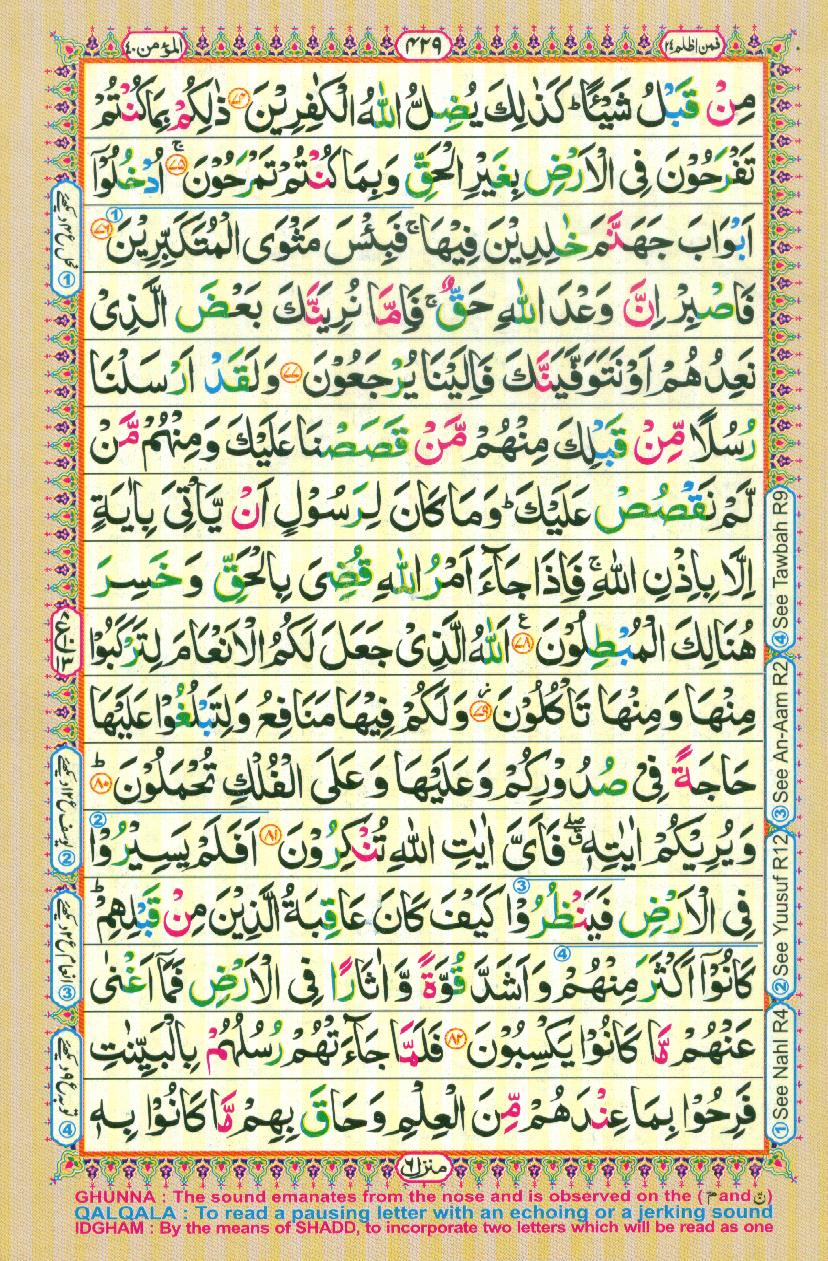 فمن اظلم ۲۴
۴۲۹
المؤمن ۴۰
مِنْ قَبْلُ شَيْـًٔا ؕ كَذٰلِكَ يُضِلُّ اللّٰهُ الْكٰفِرِيْنَ ۷۴ ذٰلِكُمْ بِمَا كُنْتُمْ
تَفْرَحُوْنَ فِى الْاَرْضِ بِغَيْرِ الْحَقِّ وَبِمَا كُنْتُمْ تَمْرَحُوْنَ ۷۵ ۚ اُدْخُلُوْۤا
اَبْوَابَ جَهَنَّمَ خٰلِدِيْنَ فِيْهَا ۚ فَبِئْسَ مَثْوَى الْمُتَكَبِّرِيْنَ ۷۶ ①
فَاصْبِرْ اِنَّ وَعْدَ اللّٰهِ حَقٌّ ۚ فَاِمَّا نُرِيَنَّكَ بَعْضَ الَّذِىْ
نَعِدُهُمْ اَوْ نَتَوَفَّيَنَّكَ فَاِلَيْنَا يُرْجَعُوْنَ ۷۷ وَلَقَدْ اَرْسَلْنَا
رُسُلًا مِّنْ قَبْلِكَ مِنْهُمْ مَّنْ قَصَصْنَا عَلَيْكَ وَمِنْهُمْ مَّنْ
لَّمْ نَقْصُصْ عَلَيْكَ ؕ وَمَا كَانَ لِرَسُوْلٍ اَنْ يَّاْتِىَ بِاٰيَةٍ
اِلَّا بِاِذْنِ اللّٰهِ ۚ فَاِذَا جَآءَ اَمْرُ اللّٰهِ قُضِىَ بِالْحَقِّ وَخَسِرَ
هُنَالِكَ الْمُبْطِلُوْنَ ۷۸ ع اَللّٰهُ الَّذِىْ جَعَلَ لَكُمُ الْاَنْعَامَ لِتَرْكَبُوْا
مِنْهَا وَمِنْهَا تَاْكُلُوْنَ ۷۹ وَلَكُمْ فِيْهَا مَنَافِعُ وَلِتَبْلُغُوْا عَلَيْهَا
حَاجَةً فِىْ صُدُوْرِكُمْ وَعَلَيْهَا وَعَلَى الْفُلْكِ تُحْمَلُوْنَ ۸۰ ؕ
وَيُرِيْكُمْ اٰيٰتِهٖ ۖ فَاَىَّ اٰيٰتِ اللّٰهِ تُنْكِرُوْنَ ۸۱ اَفَلَمْ يَسِيْرُوْا ②
فِى الْاَرْضِ فَيَنْظُرُوْا ③ كَيْفَ كَانَ عَاقِبَةُ الَّذِيْنَ مِنْ قَبْلِهِمْ ؕ
كَانُوْۤا اَكْثَرَ مِنْهُمْ ④ وَاَشَدَّ قُوَّةً وَّاٰثَارًا فِى الْاَرْضِ فَمَاۤ اَغْنٰى
عَنْهُمْ مَّا كَانُوْا يَكْسِبُوْنَ ۸۲ فَلَمَّا جَآءَتْهُمْ رُسُلُهُمْ بِالْبَيِّنٰتِ
فَرِحُوْا بِمَا عِنْدَهُمْ مِّنَ الْعِلْمِ وَحَاقَ بِهِمْ مَّا كَانُوْا بِهٖ
منزل ۶
① See Nahl R4
② See Yuusuf R12
③ See An-Aam R2
④ See Tawbah R9
① نحل ع ۴ دیکھیے
② یوسف ع ۱۲ دیکھیے
③ انعام ع ۲ دیکھیے
④ توبہ ع ۹ دیکھیے
GHUNNA : The sound emanates from the nose and is observed on the ( مّ and نّ )
QALQALA : To read a pausing letter with an echoing or a jerking sound
IDGHAM : By the means of SHADD, to incorporate two letters which will be read as one